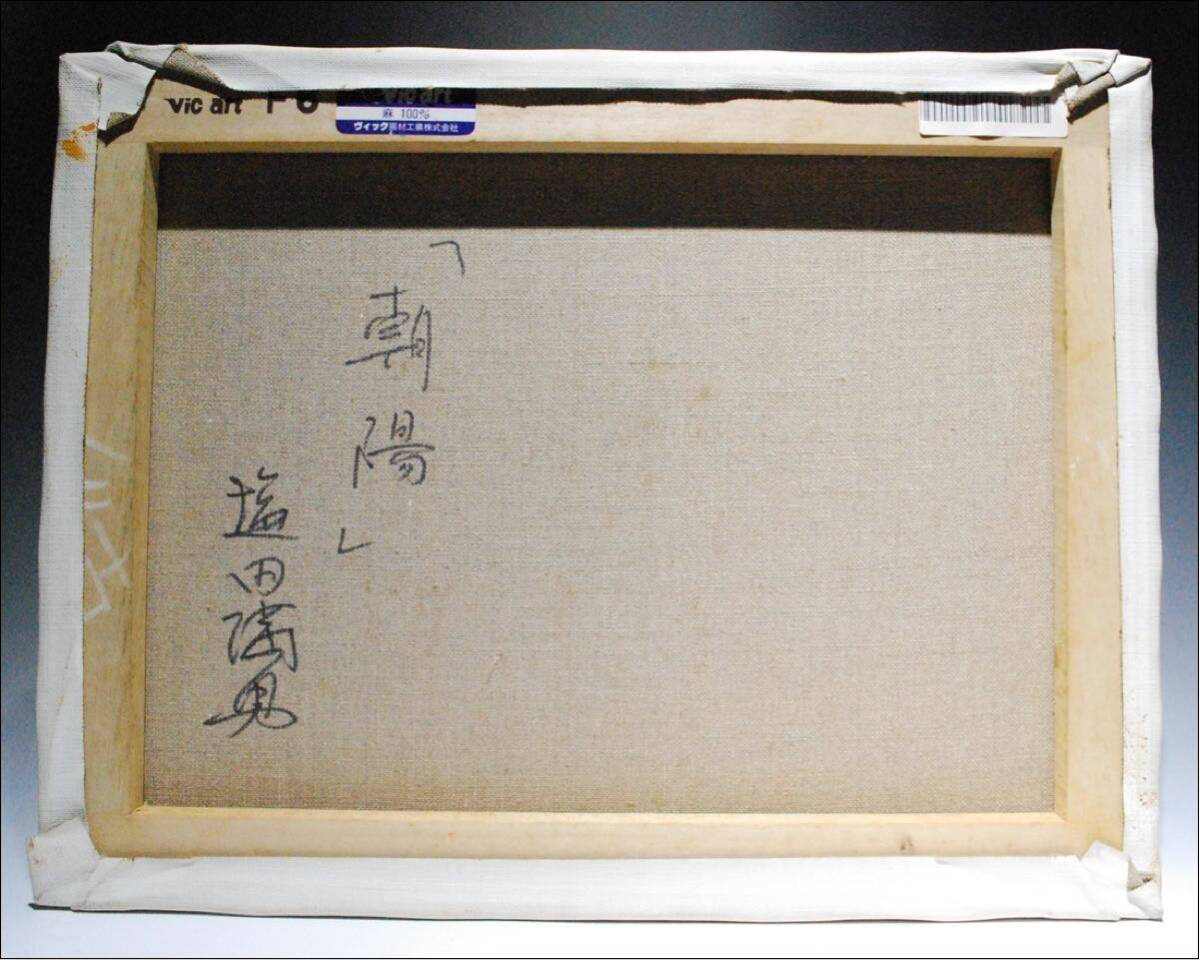 Vic art F6
Vic art
麻 100%
ヴィック画材工業株式会社
「朝陽」
塩田